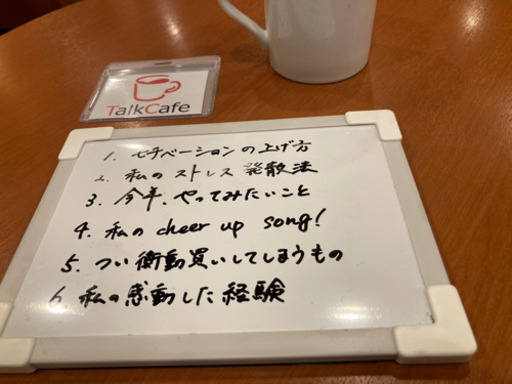 TalkCafe
1. モチベーションの上げ方
2. 私のストレス発散法
3. 今年、やってみたいこと
4. 私の cheer up song!
5. つい衝動買いしてしまうもの
6. 私の感動した経験